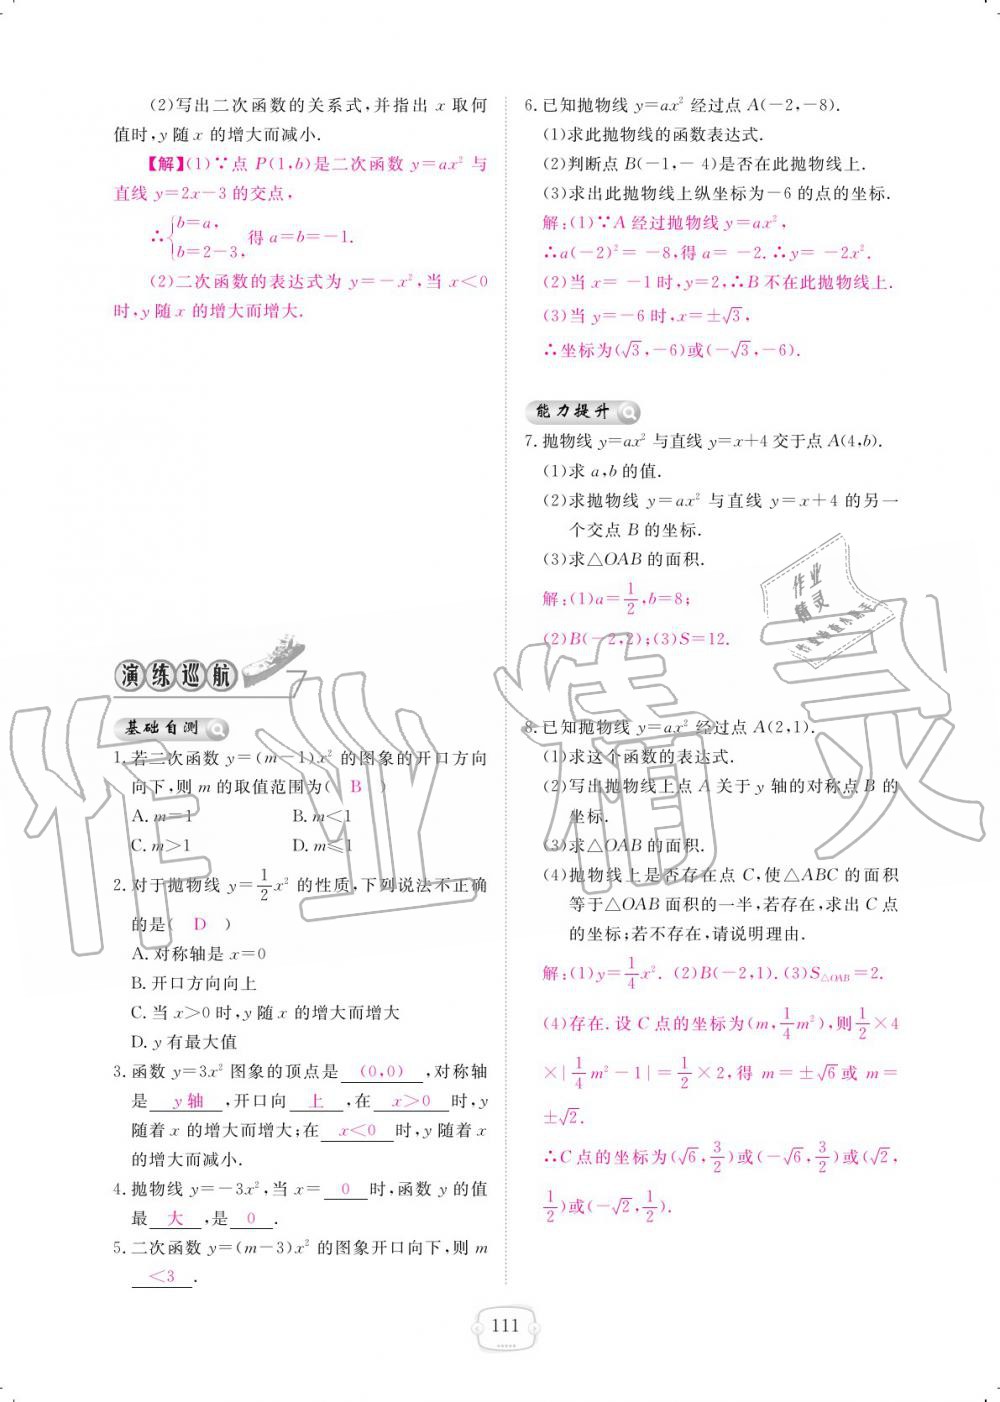 (2)写出二次函数的关系式,并指出 x 取何
值时,y 随 x 的增大而减小.
【解】(1)∵点 P(1,b)是二次函数 y=ax² 与
直线 y=2x-3 的交点,
∴{b=a, b=2-3, 得 a=b=-1.
(2)二次函数的表达式为 y=-x²,当 x<0
时,y 随 x 的增大而增大.
演练巡航
基础自测
1. 若二次函数 y=(m-1)x² 的图象的开口方向
向下,则 m 的取值范围为( B )
A. m=1 B. m<1
C. m>1 D. m≤1
2. 对于抛物线 y=1/2x² 的性质,下列说法不正确
的是( D )
A. 对称轴是 x=0
B. 开口方向向上
C. 当 x>0 时,y 随 x 的增大而增大
D. y 有最大值
3. 函数 y=3x² 图象的顶点是 (0,0) ,对称轴
是 y 轴 ,开口向 上 ,在 x>0 时,y
随着 x 的增大而增大;在 x<0 时,y 随着 x
的增大而减小.
4. 抛物线 y=-3x²,当 x= 0 时,函数 y 的值
最 大 ,是 0 .
5. 二次函数 y=(m-3)x² 的图象开口向下,则 m
<3 .
6. 已知抛物线 y=ax² 经过点 A(-2,-8).
(1)求此抛物线的函数表达式.
(2)判断点 B(-1,-4)是否在此抛物线上.
(3)求出此抛物线上纵坐标为-6 的点的坐标.
解:(1)∵A 经过抛物线 y=ax²,
∴a(-2)²=-8,得 a=-2.∴y=-2x².
(2)当 x=-1 时,y=2,∴B 不在此抛物线上.
(3)当 y=-6 时,x=±√3,
∴坐标为(√3,-6)或(-√3,-6).
能力提升
7. 抛物线 y=ax² 与直线 y=x+4 交于点 A(4,b).
(1)求 a,b 的值.
(2)求抛物线 y=ax² 与直线 y=x+4 的另一
个交点 B 的坐标.
(3)求△OAB 的面积.
解:(1)a=1/2,b=8;
(2)B(-2,2);(3)S=12.
8. 已知抛物线 y=ax² 经过点 A(2,1).
(1)求这个函数的表达式.
(2)写出抛物线上点 A 关于 y 轴的对称点 B 的
坐标.
(3)求△OAB 的面积.
(4)抛物线上是否存在点 C,使△ABC 的面积
等于△OAB 面积的一半,若存在,求出 C 点
的坐标;若不存在,请说明理由.
解:(1)y=1/4x². (2)B(-2,1). (3)S△OAB=2.
(4)存在. 设 C 点的坐标为(m,1/4m²),则1/2×4
×|1/4m²-1|=1/2×2,得 m=±√6或 m=
±√2.
∴C 点的坐标为(√6,3/2)或(-√6,3/2)或(√2,
1/2)或(-√2,1/2).
111
作业精灵
作业
精灵